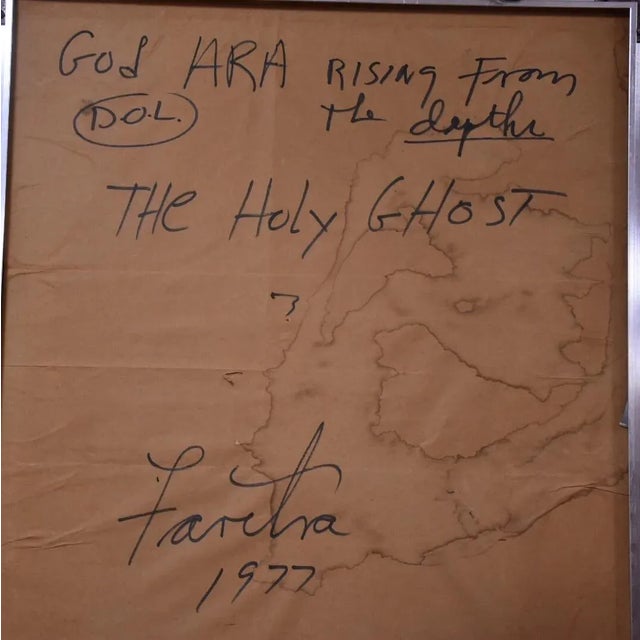 God ARA RISING From
D.O.L. the depths
THE Holy GHOST
Faretra
1977